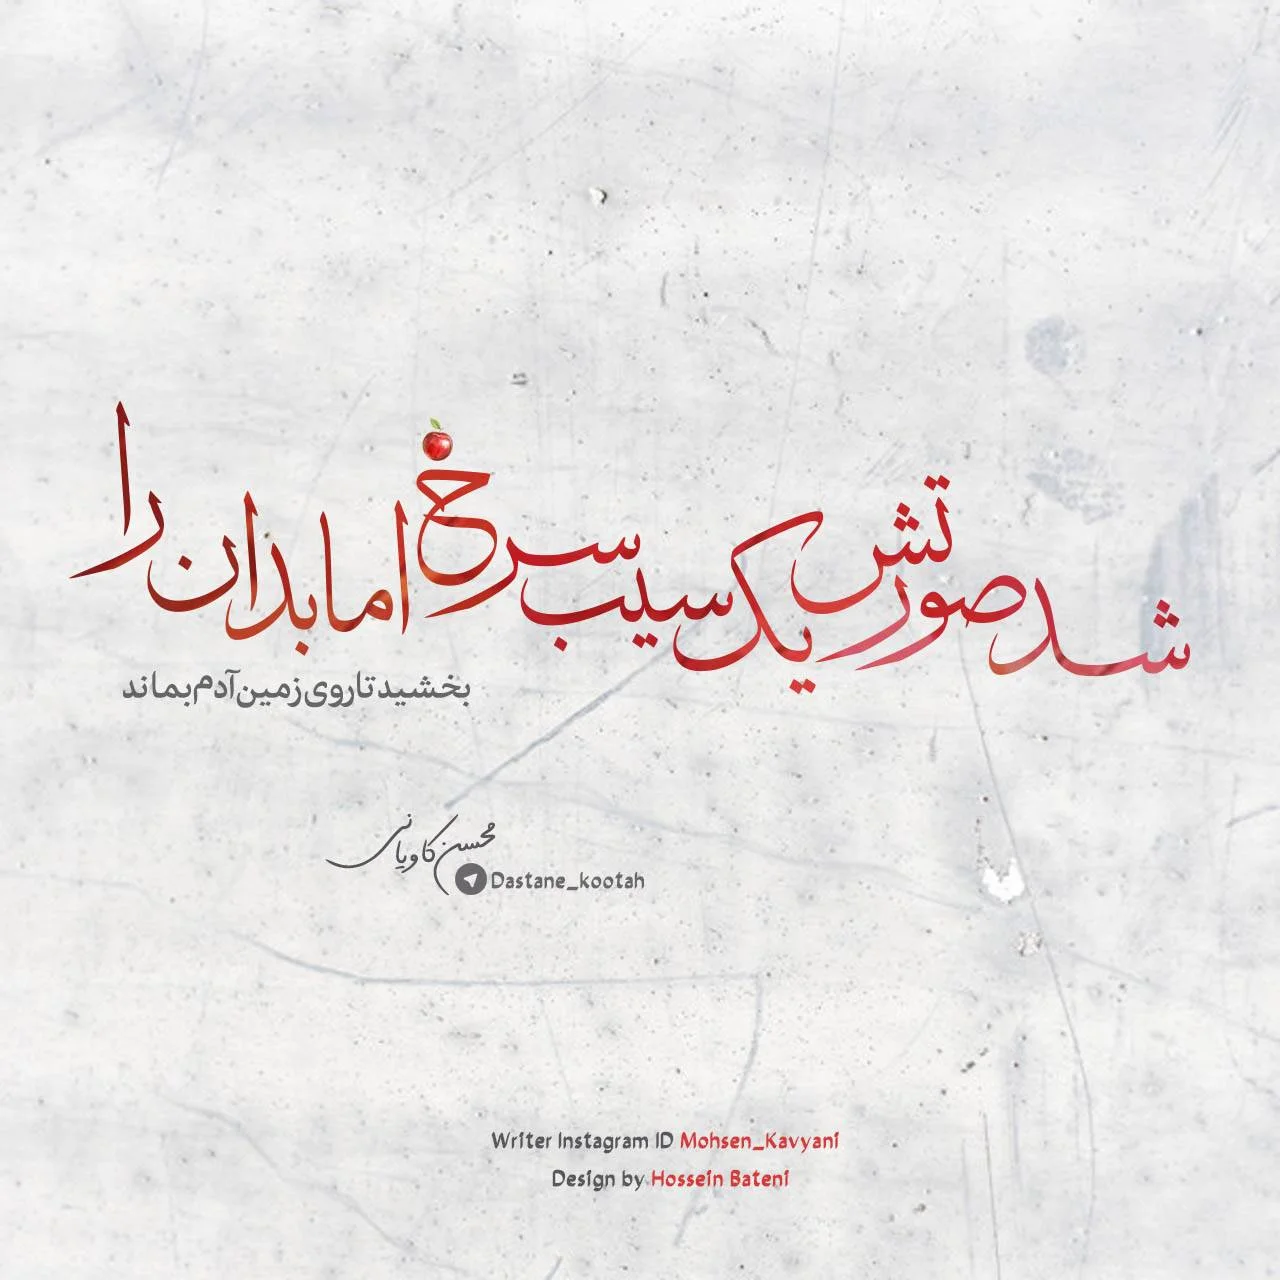 شد صورتش یک سیب سرخ اما بدان را
بخشید تا روی زمین آدم بماند
محسن کاویانی
Dastane_kootah
Writer Instagram ID Mohsen_Kavyani
Design by Hossein Bateni